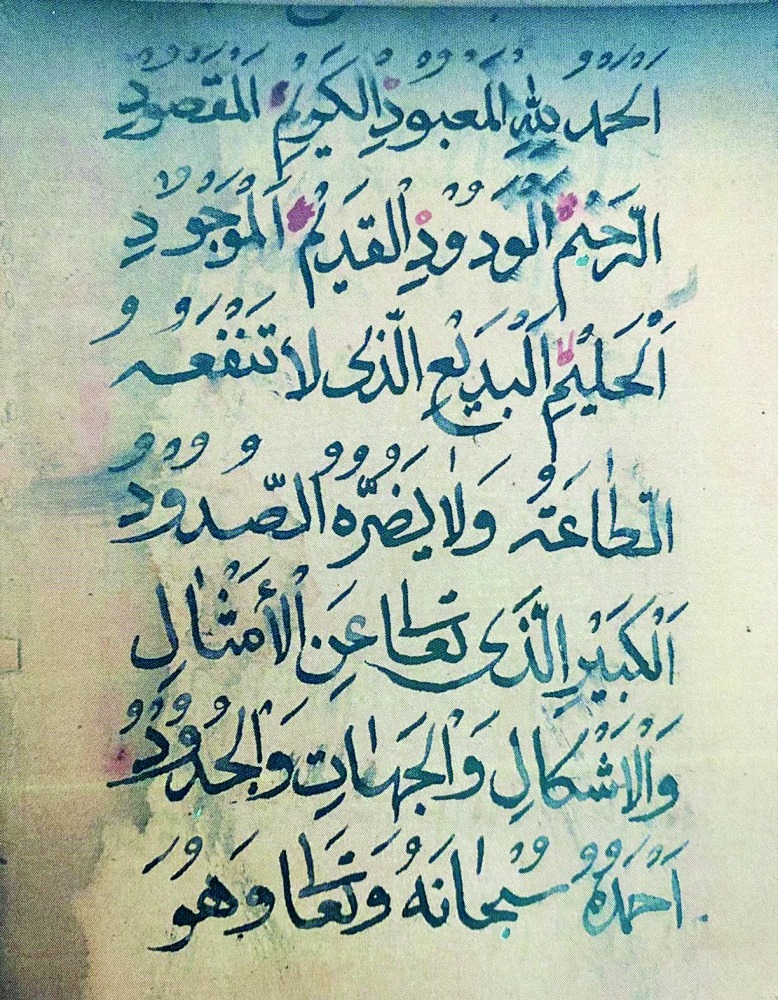 اَلْحَمْدُ لِلّٰهِ الْمَعْبُوْدِ الْكَرِيْمِ الْمَقْصُوْدِ
الرَّحِيْمِ الْوَدُوْدِ الْقَدِيْمِ الْمَوْجُوْدِ
اَلْحَلِيْمِ الْبَدِيْعِ الَّذِى لَا تَنْفَعُهُ
الطَّاعَةُ وَلَا يَضُرُّهُ الصُّدُوْدُ
اَلْكَبِيْرِ الَّذِى تَعَالٰى عَنِ الْأَمْثَالِ
وَالْاَشْكَالِ وَالْجِهَاتِ وَالْحُدُوْدِ
اَحْمَدُهُ سُبْحَانَهُ وَتَعَالٰى وَهُوَ